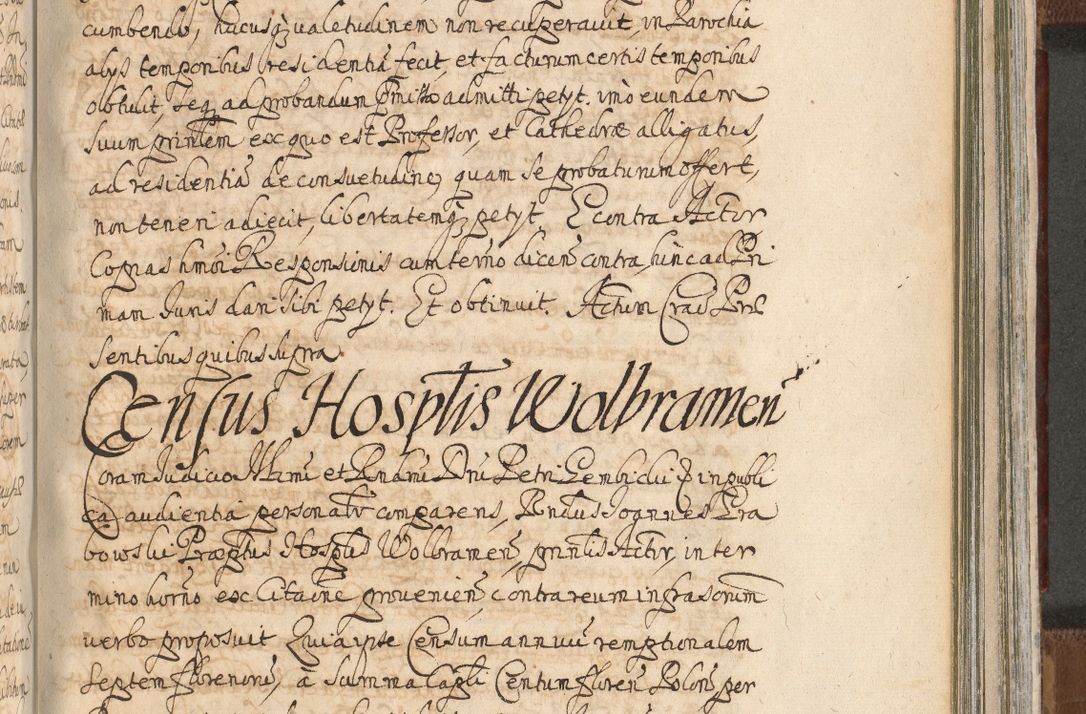 cumbendo, hacusq; valetudinem non recuperavit, in Parochia
alys temporibus residentiã fecit, et facturum certis temporibus
obtulit, seq; ad probandum pmissa admitti petyt. imò eundem
suum prinlem ex quo est Professor, et Cathedræ alligatus,
ad residentiã de consuetudine, quam se probaturum offert,
non teneri adiecit, libertatemq; petyt. E contra Actor
Copias hmõi Responsionis cum termo dicen contra hinc ad Pri
mam Juris dari sibi petyt. Et obtinuit. Actum Crac Præ
sentibus quibus supra.
Census Hosplis Wolbramen
Coram Judicio Illmi et Rndmi Dni Petri Gembicki in publi
ca audientia personalr comparens, Rndus Joannes Gra
bowski Præptus Hosplis Wolbramen, prinlis Actor, in ter
mino horno ex Citaone provenien, contra reum infrascrium
verbo proposuit Quia ipse Censum annuũ remptionalem
septem florenorũ, à summa Capli Centum floren Polon per